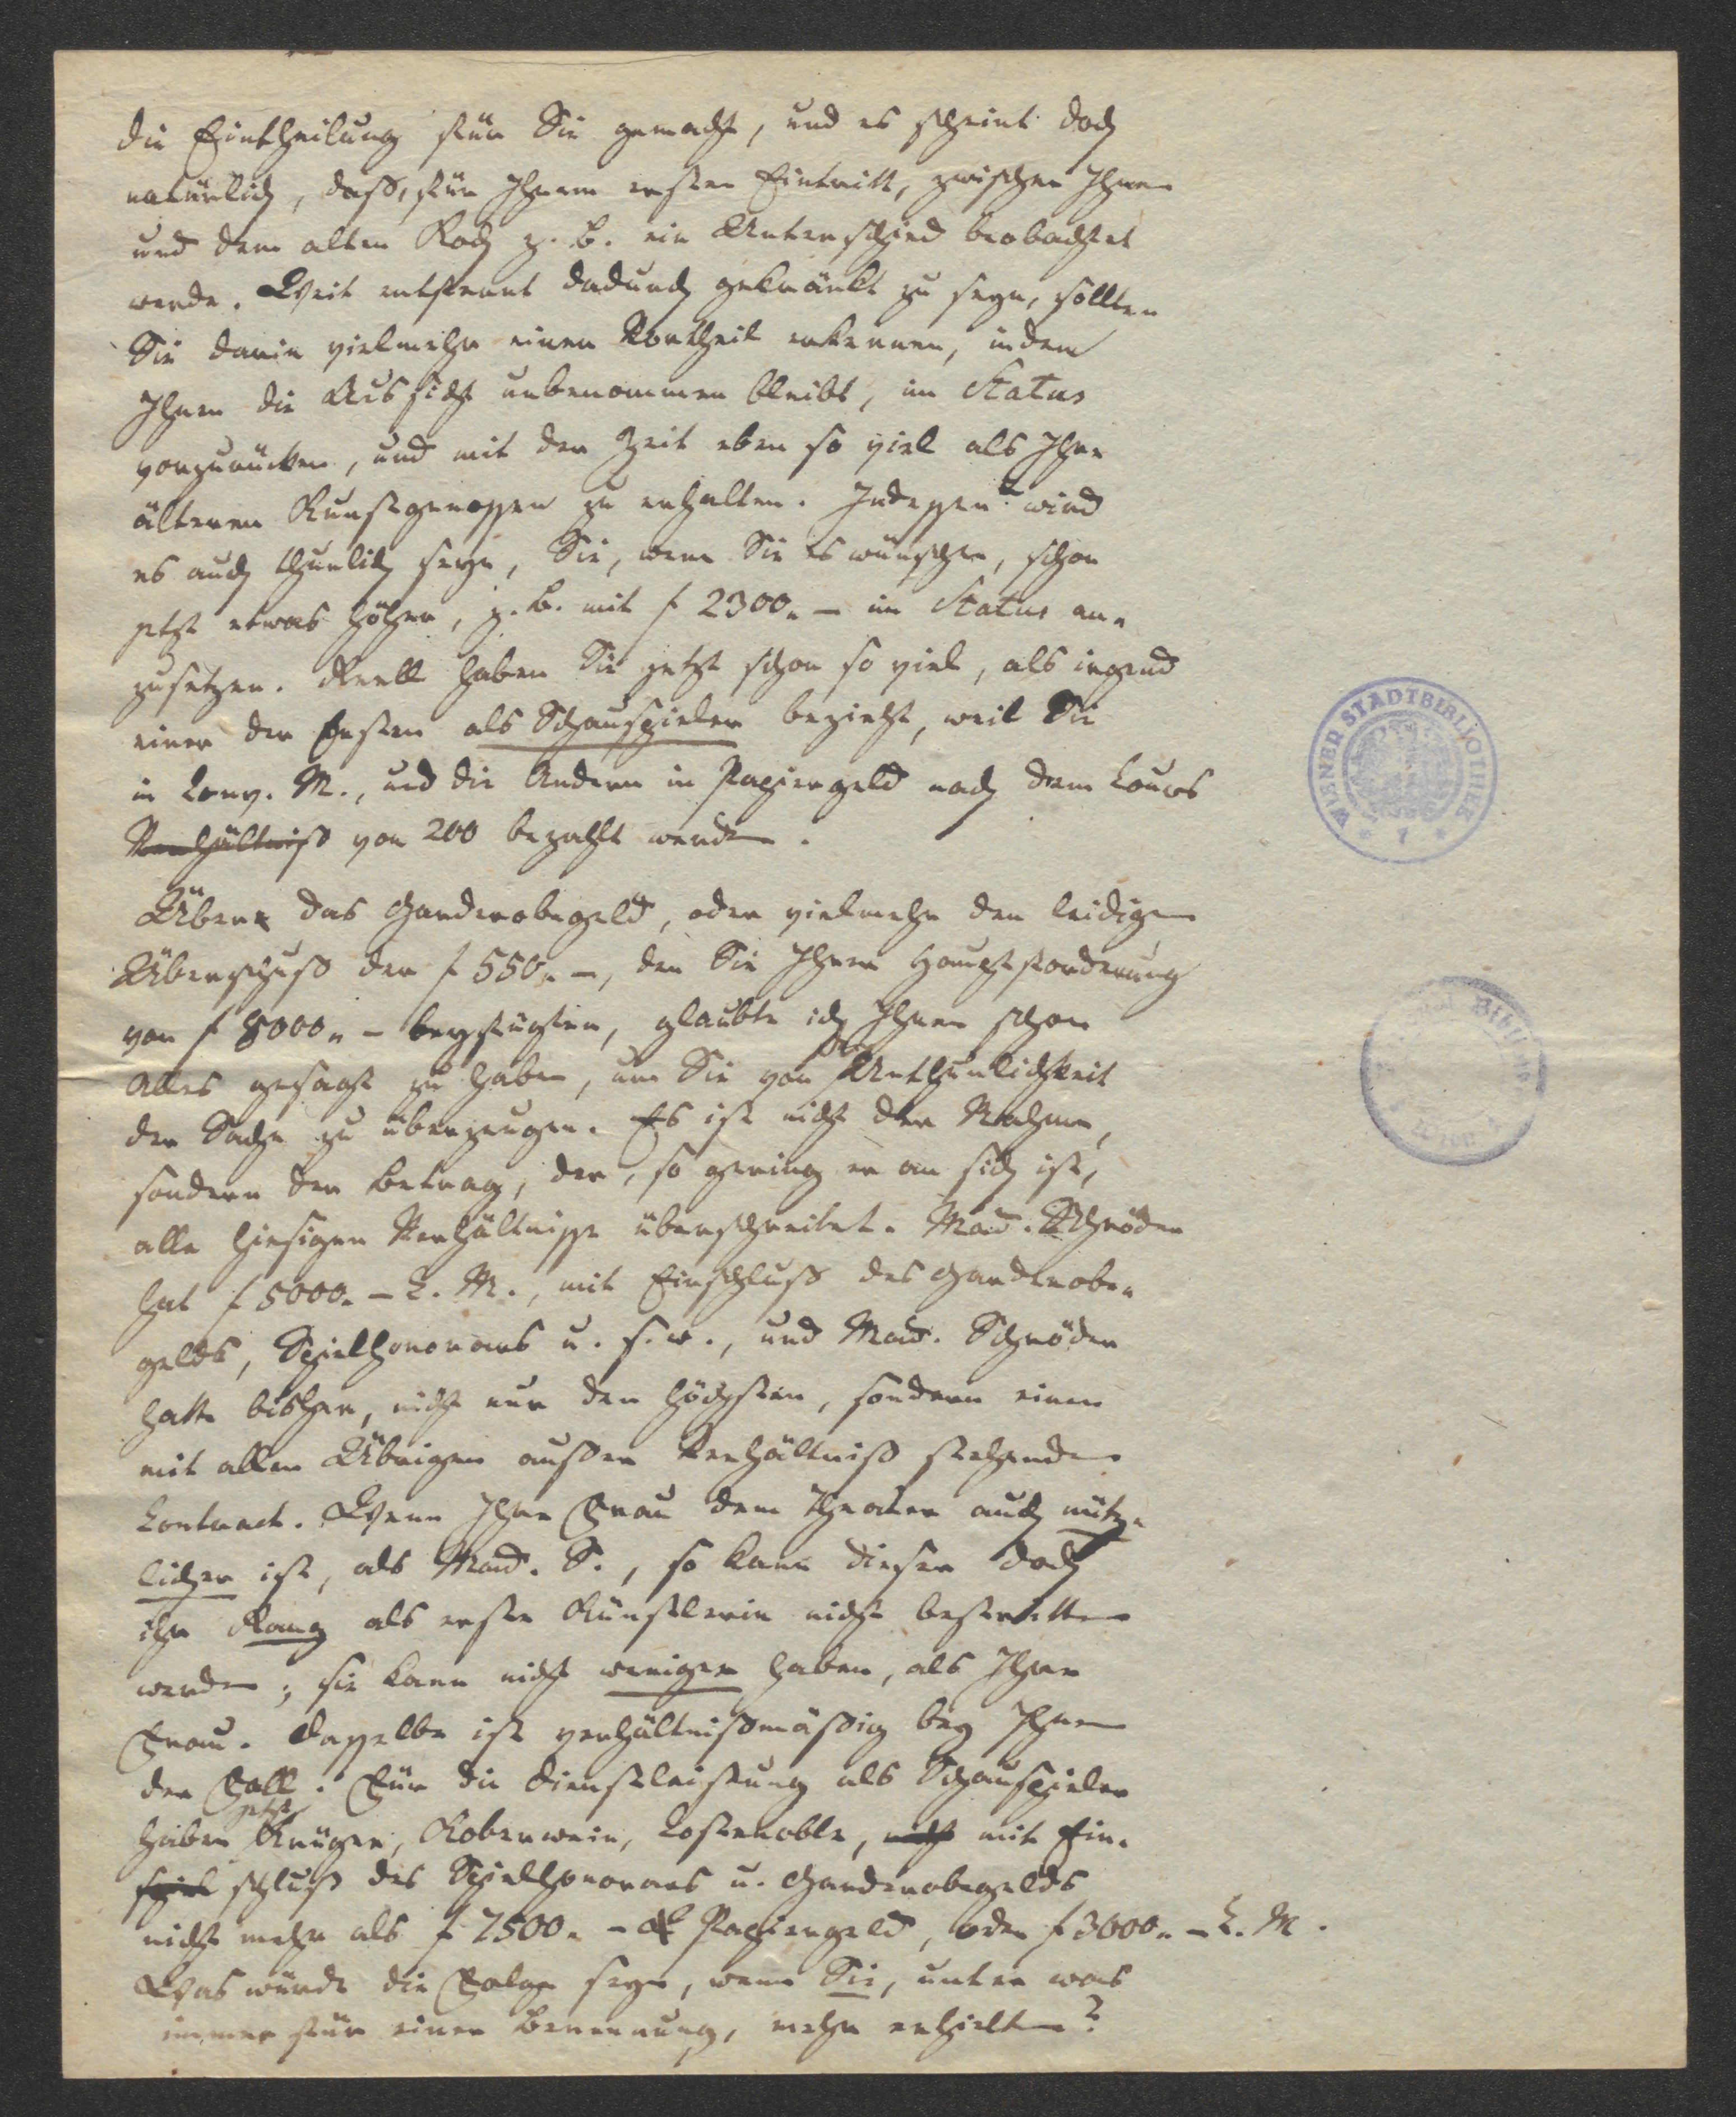 die Eintheilung für Sie gemacht, und es scheint doch
natürlich, daß, für Ihren ersten Eintritt, zwischen Ihnen
und dem alten Koch z. B. ein Unterschied beobachtet
werde. Weit entfernt dadurch gekränkt zu seyn, sollten
Sie darin vielmehr einen Vortheil erkennen, indem
Ihnen die Aussicht unbenommen bleibt, im Status
vorzurücken, und mit der Zeit eben so viel als Ihre
älteren Kunstgenossen zu erhalten. Indessen wird
es auch thunlich seyn, Sie, wenn Sie es wünschen, schon
jetzt etwas höher, z. B. mit f 2300.- im Status an-
zusetzen. Reell haben Sie jetzt schon so viel, als irgend
einer der Ersten als Schauspieler bezieht, weil Sie
in Conv. M., und die Andern in Papiergeld nach dem Cours
Verhältniß von 200 bezahlt werden.
Über das Garderobegeld, oder vielmehr den leidigen
Überschuß der f 550.-, den Sie Ihrer Hauptforderung
von f 8000.- beyfügten, glaubte ich Ihnen schon
Alles gesagt zu haben, um Sie von der Unthunlichkeit
der Sache zu überzeugen. Es ist nicht der Nahme,
sondern der Betrag, der, so gering er an sich ist,
alle hiesigen Verhältnisse überschreitet. Mad. Schröder
hat f 5000.- C. M., mit Einschluß des Garderobe-
gelds, Spielhonorars u. s. w., und Mad. Schröder
hatte bisher, nicht nur den höchsten, sondern einen
mit allen Übrigen außer Verhältniß stehenden
Contract. Wenn Ihre Frau dem Theater auch nütz-
licher ist, als Mad. S., so kann dieser doch
ihr Rang als erste Künstlerin nicht bestritten
werden; sie kann nicht weniger haben, als Ihre
Frau. Dasselbe ist verhältnißmäßig bey Ihnen
der Fall. Für die Dienstleistung als Schauspieler
haben jetzt Krüger, Koberwein, Costenoble, nicht mit Ein-
spiel schluß des Spielhonorars u. Garderobegelds
nicht mehr als f 7500.- Papiergeld, oder f 3000.- C. M.
Was würde die Folge seyn, wenn Sie, unter was
immer für einer Benennung, mehr erhielten?
WIENER STADTBIBLIOTHEK
* 1 *